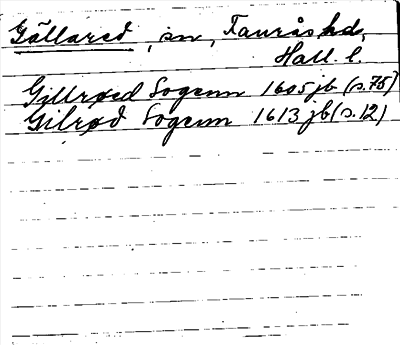 Gällared, sn, Faurås hd,
Hall. l.
Gillrøed Sogenn 1605 jb (s. 75)
Gilrød Sogenn 1613 jb (s. 12)